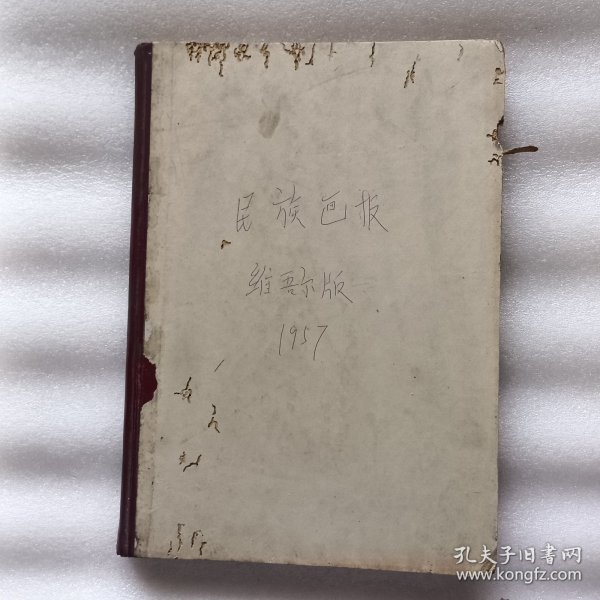 民族画报
维吾尔版
1957
孔夫子旧书网
www.kongfz.com